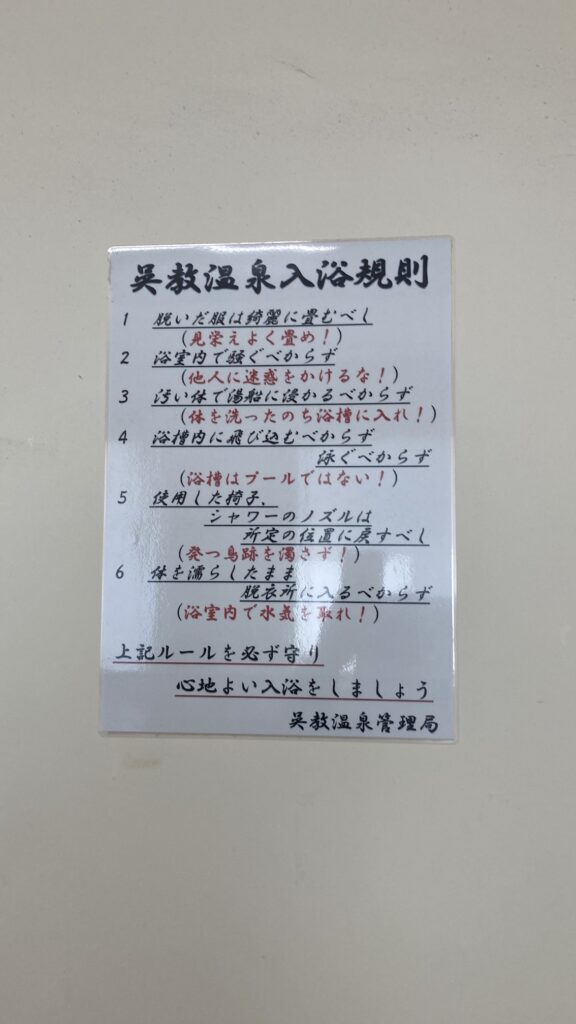 呉教温泉入浴規則
1 脱いだ服は綺麗に畳むべし
(見栄えよく畳め!)
2 浴室内で騒ぐべからず
(他人に迷惑をかけるな!)
3 汚い体で湯船に浸かるべからず
(体を洗ったのち浴槽に入れ!)
4 浴槽内に飛び込むべからず
泳ぐべからず
(浴槽はプールではない!)
5 使用した椅子、
シャワーのノズルは
所定の位置に戻すべし
(発つ鳥跡を濁さず!)
6 体を濡らしたまま
脱衣所に入るべからず
(浴室内で水気を取れ!)
上記ルールを必ず守り
心地よい入浴をしましょう
呉教温泉管理局